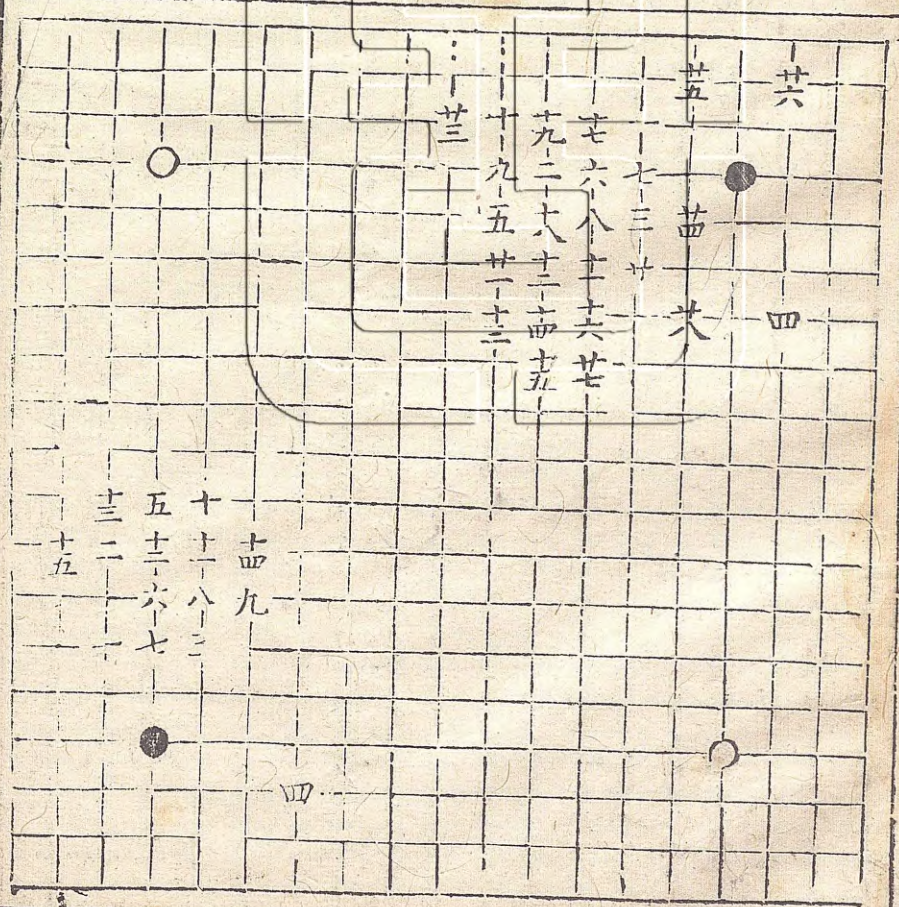 廿五 廿六
廿三 十 十九 十七
九 二 六 七
五 十八 八 三 廿四
廿一 十二 十一 廿
十三 十四 十六 廿八 四
十五 廿七
十三 五 十
十五 二 十二 十一 十四
六 八 九
一 七 三
四